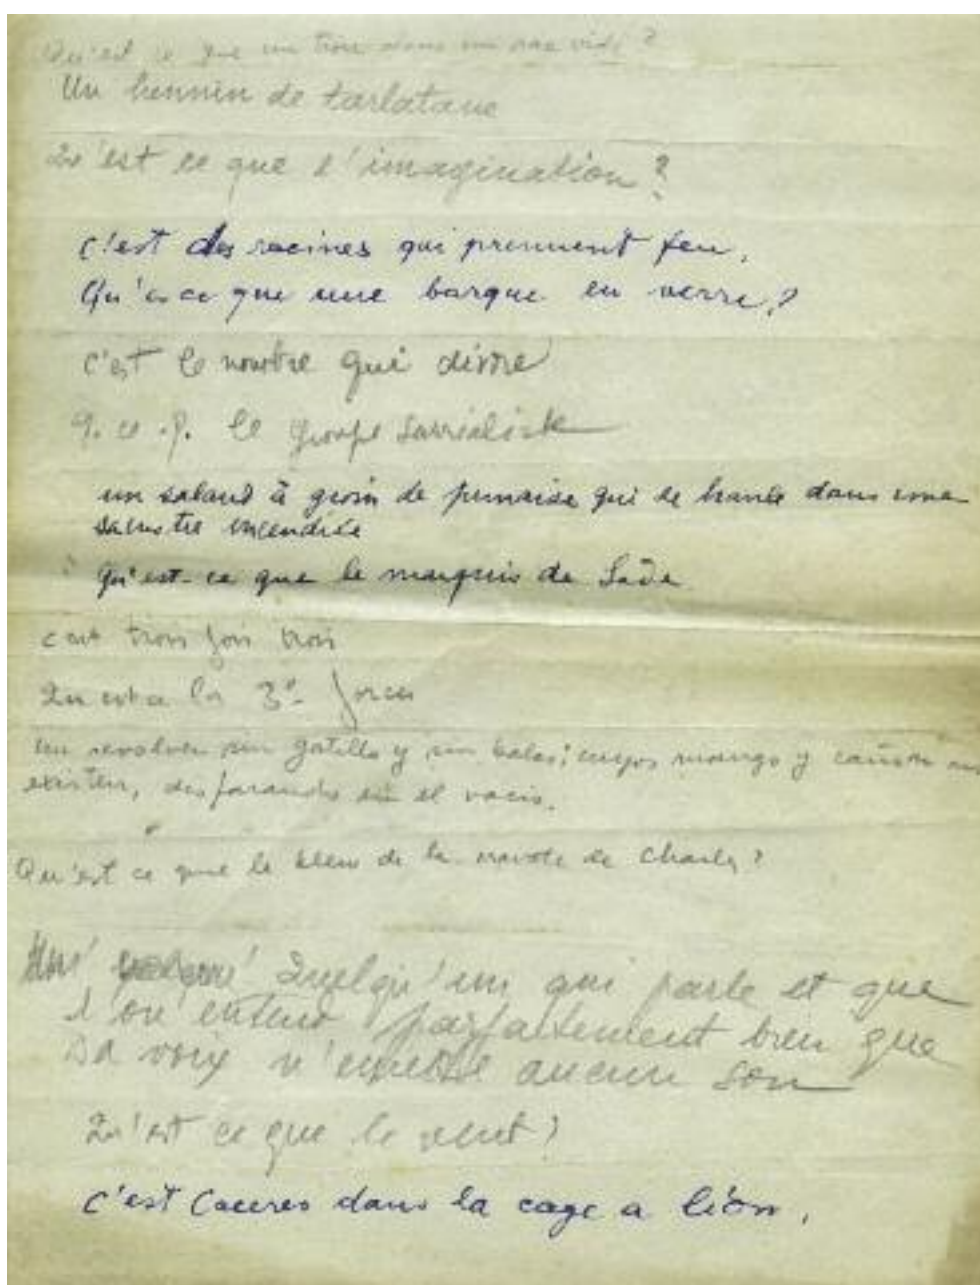 Qu'est ce que un trou dans un sac vide ?
Un hennin de tarlatane
Qu'est ce que l'imagination ?
C'est des racines qui prennent feu.
Qu'es ce que une barque en verre ?
C'est le nombre qui divise
q. ce. q. le groupe Surréaliste
un salaud à groin de punaise qui se branle dans une
incendiée
Qu'est-ce que le marquis de Sade
c'est trois fois trois
Qu'est ce la 3e force
un revolver sin gatillo y sin balas; cuyos mango y cañon no
existen, disparando en el vacio.
Qu'est ce que le bleu de la de Charly ?
Quelqu'un qui parle et que
l'on entend parfaitement bien que
sa voix n'emette aucun son
Qu'est ce que le vent ?
C'est Caceres dans la cage a lion.